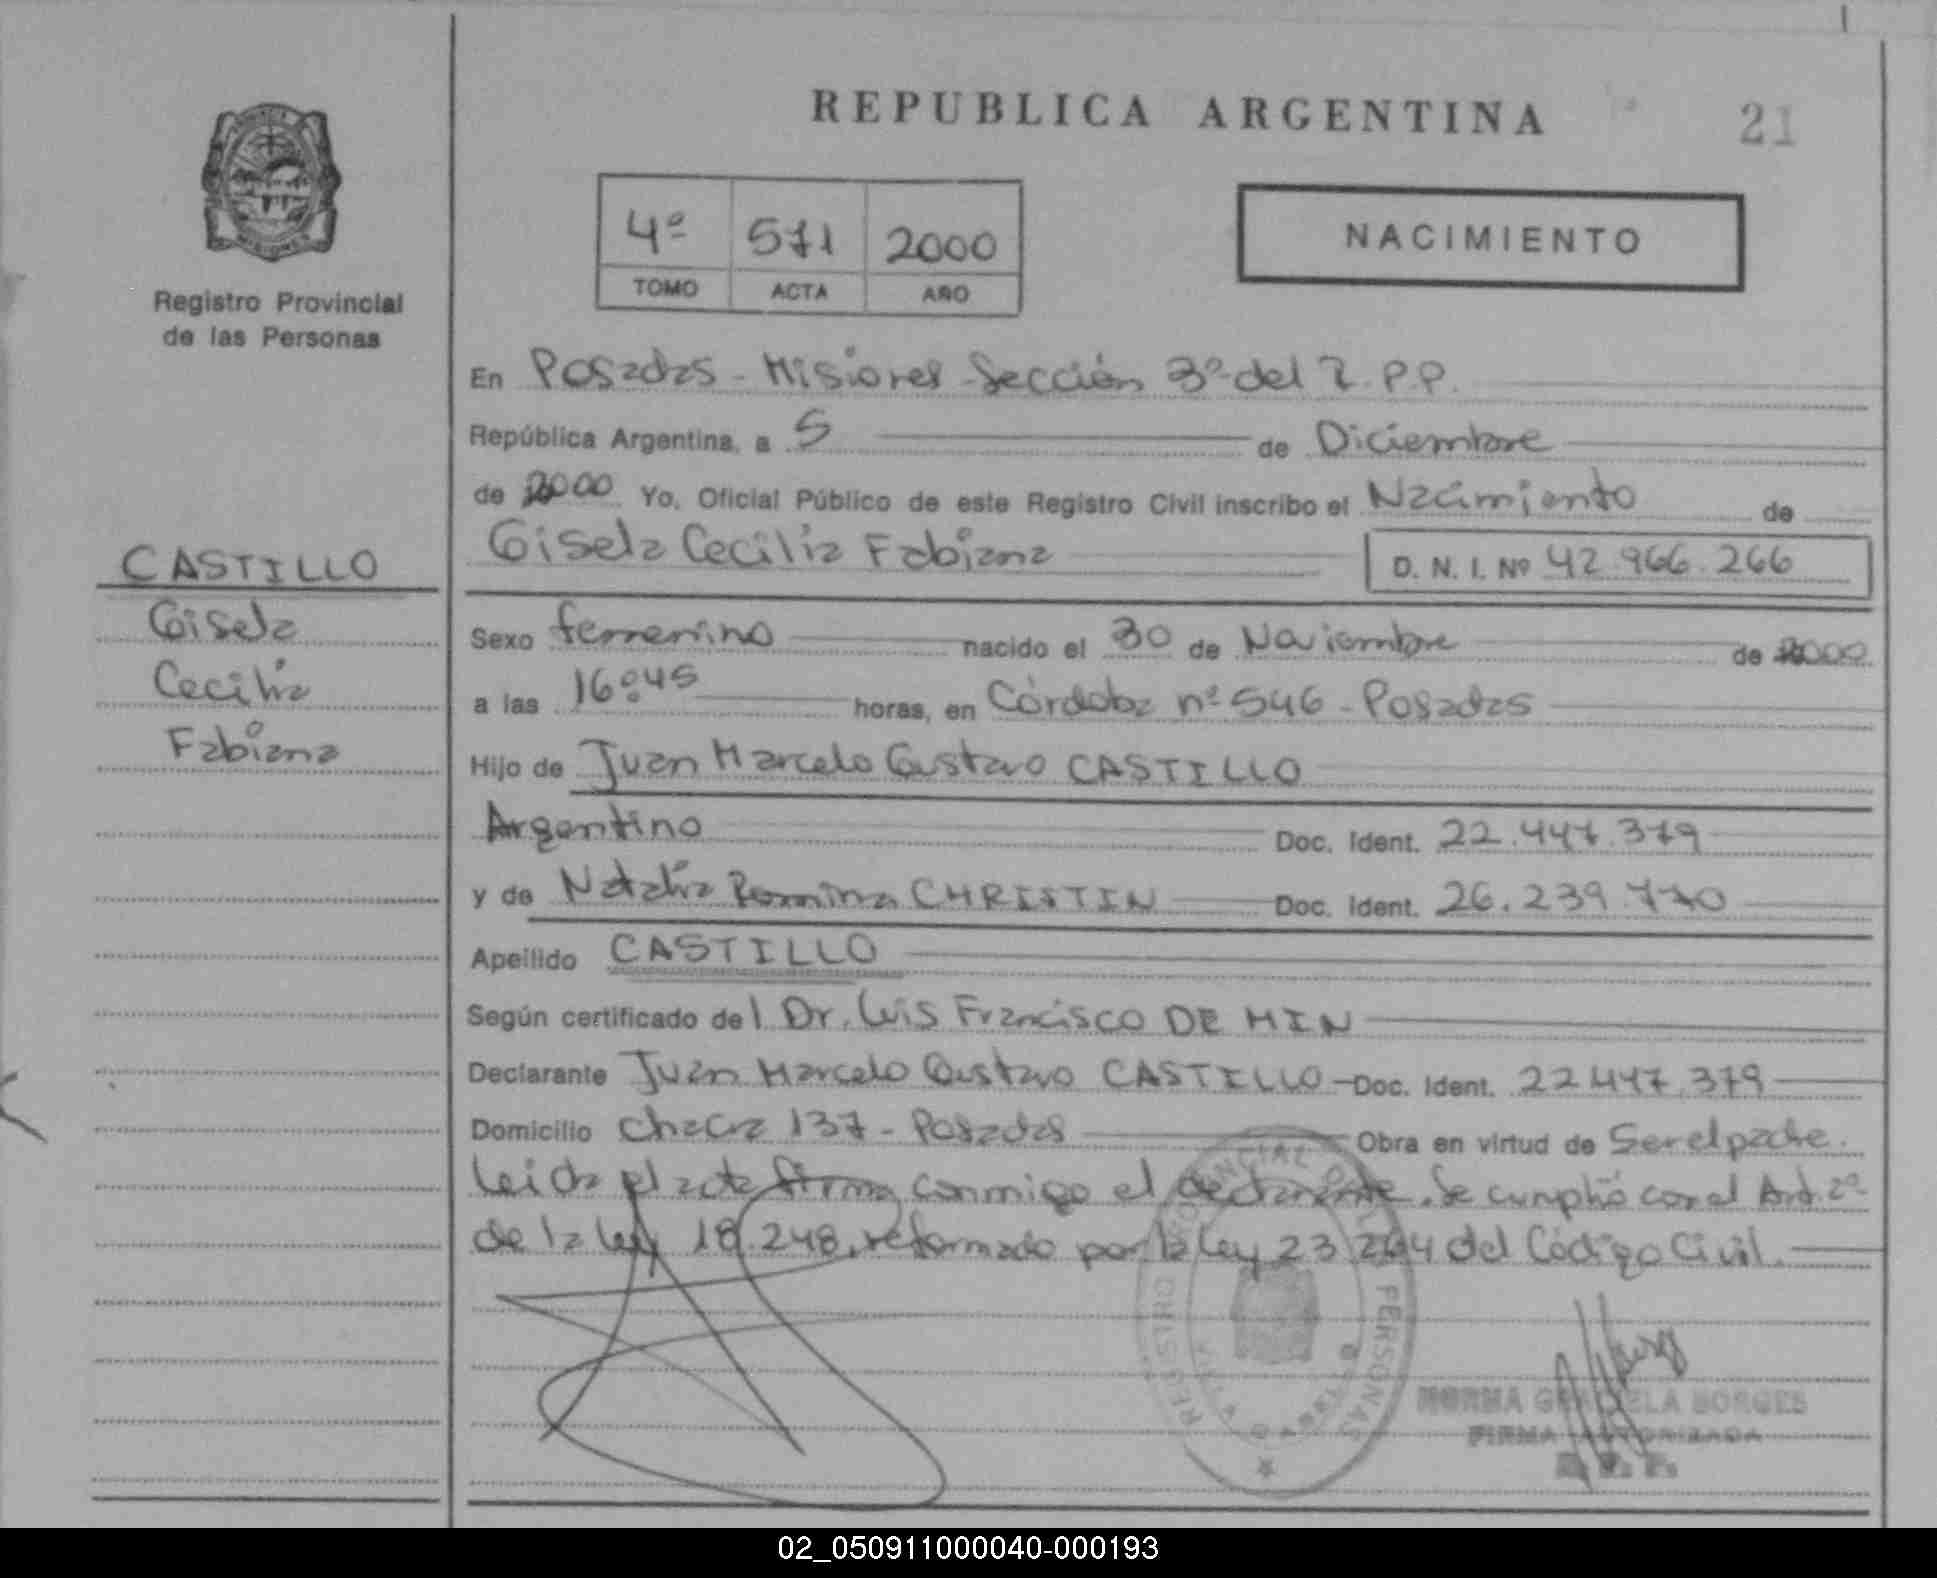 REPUBLICA ARGENTINA
21
4º 571 2000
TOMO ACTA AÑO
NACIMIENTO
MISIONES
Registro Provincial
de las Personas
En Posadas - Misiones - Sección 3º del R.P.P.
República Argentina, a 5 de Diciembre
de 2000 Yo, Oficial Público de este Registro Civil inscribo el Nacimiento de
Gisela Cecilia Fabiana
D. N. I. Nº 42.966.266
CASTILLO
Gisela
Cecilia
Fabiana
Sexo femenino nacido el 30 de Noviembre de 2000
a las 16:45 horas, en Córdoba nº 546 - Posadas
Hijo de Juan Marcelo Gustavo CASTILLO
Argentino Doc. Ident. 22.447.379
y de Natalia Romina CHRISTIN Doc. Ident. 26.239.770
Apellido CASTILLO
Según certificado del Dr. Luis Francisco DE MIN
Declarante Juan Marcelo Gustavo CASTILLO - Doc. Ident. 22.447.379
Domicilio Chacra 137 - Posadas Obra en virtud de Ser el padre.
Leida el acta firma conmigo el declarante. Se cumplió con el Art. 2º
de la Ley 18.248, reformado por la Ley 23.264 del Código Civil.
REGISTRO PROVINCIAL DE LAS PERSONAS
NORMA GRACIELA BORGES
FIRMA AUTORIZADA
R. P. P.
02_050911000040-000193